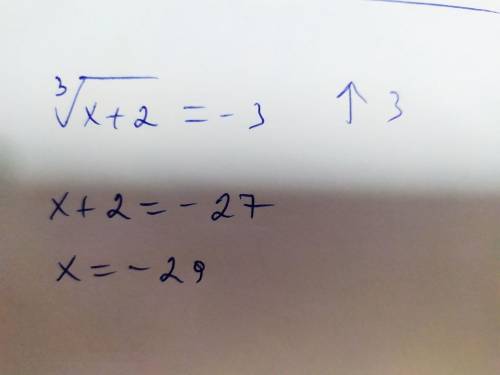 ∛(x+2) = -3 ↑ 3
x+2=-27
x=-29